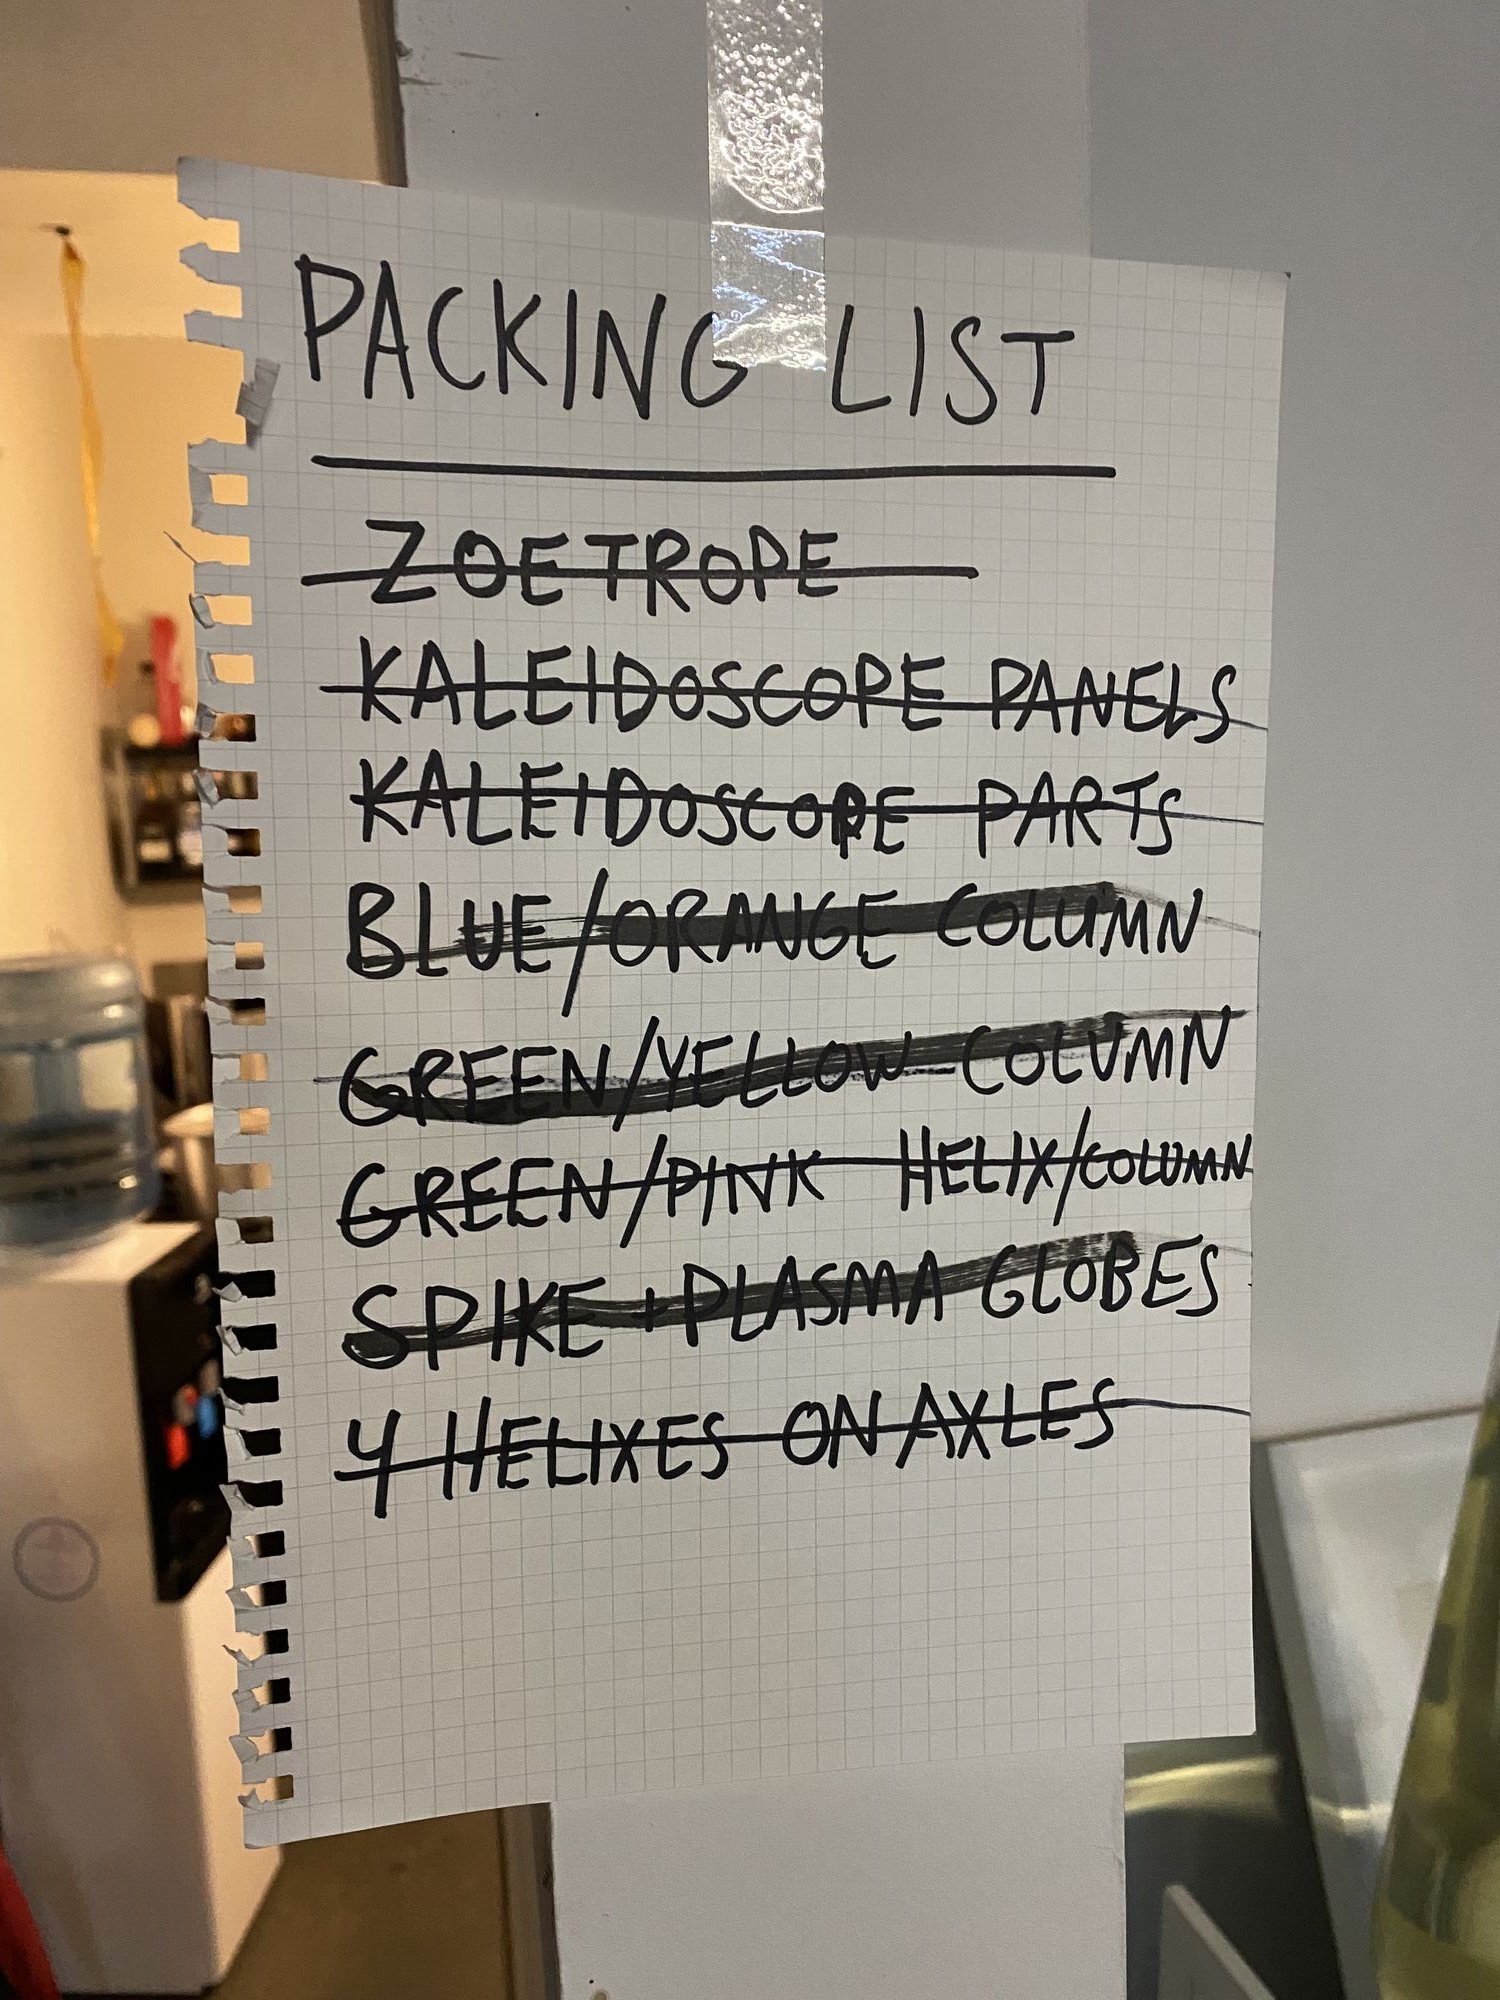 PACKING LIST
ZOETROPE
KALEIDOSCOPE PANELS
KALEIDOSCOPE PARTS
BLUE/ORANGE COLUMN
GREEN/YELLOW COLUMN
GREEN/PINK HELIX/COLUMN
SPIKE + PLASMA GLOBES
4 HELIXES ON AXLES